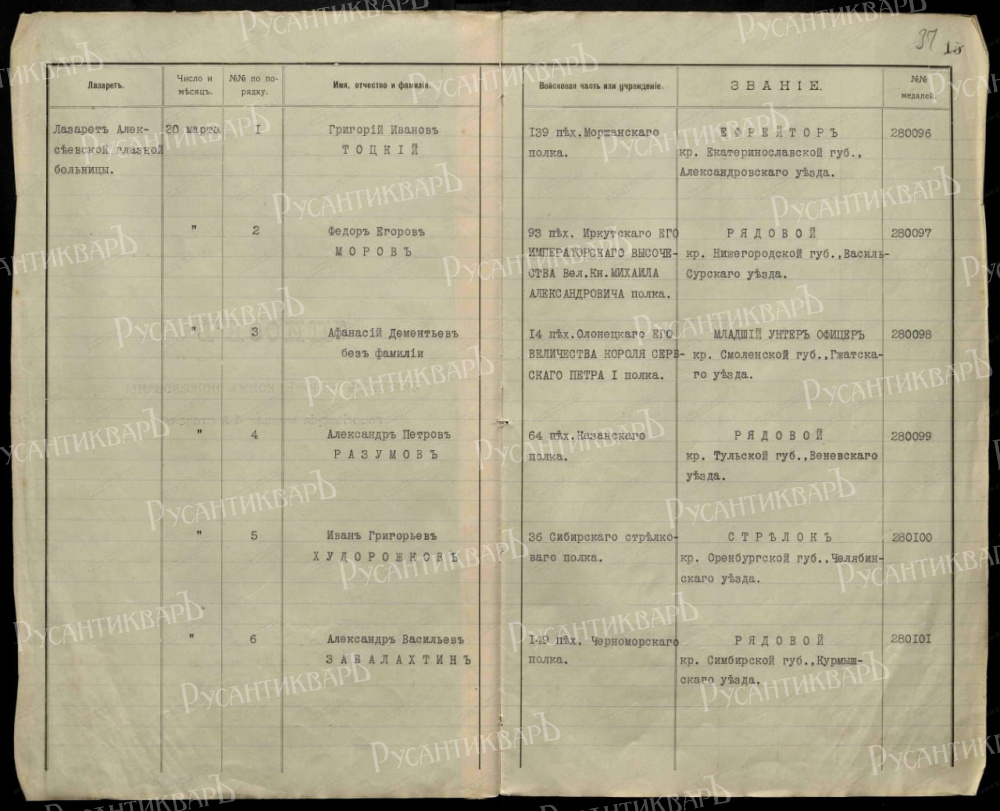 37 13
Лазаретъ. Число и мѣсяцъ. №№ по порядку. Имя, отчество и фамилія. Войсковая часть или учрежденіе. ЗВАНІЕ. №№ медалей.
Лазаретъ Алек- 20 марта I Григорій Ивановъ I39 пѣх.Моршанскаго ЕФРЕЙТОРЪ 280096
сѣевской глазной ТОЦКІЙ полка. кр. Екатеринославской губ.,
больницы. Александровскаго уѣзда.
" 2 Федоръ Егоровъ 93 пѣх. Иркутскаго ЕГО РЯДОВОЙ 280097
МОРОВЪ ИМПЕРАТОРСКАГО ВЫСОЧЕ- кр. Нижегородской губ.,Василь-
СТВА Вел.Кн.МИХАИЛА Сурскаго уѣзда.
АЛЕКСАНДРОВИЧА полка.
" 3 Афанасій Дементьевъ I4 пѣх.Олонецкаго ЕГО МЛАДШІЙ УНТЕРЪ ОФИЦЕРЪ 280098
безъ фамиліи ВЕЛИЧЕСТВА КОРОЛЯ СЕРБ- кр. Смоленской губ.,Гжатска-
СКАГО ПЕТРА I полка. го уѣзда.
" 4 Александръ Петровъ 64 пѣх.Казанскаго РЯДОВОЙ 280099
РАЗУМОВЪ полка. кр. Тульской губ.,Веневскаго
уѣзда.
" 5 Иванъ Григорьевъ 36 Сибирскаго стрѣлко- СТРѢЛОКЪ 280I00
ХУДОРОЖКОВЪ ваго полка. кр. Оренбургской губ.,Челябин-
скаго уѣзда.
" 6 Александръ Васильевъ I49 пѣх. Черноморскаго РЯДОВОЙ 280I0I
ЗАБАЛАХТИНЪ полка. кр. Симбирской губ.,Курмыш-
скаго уѣзда.
РусантикварЪ